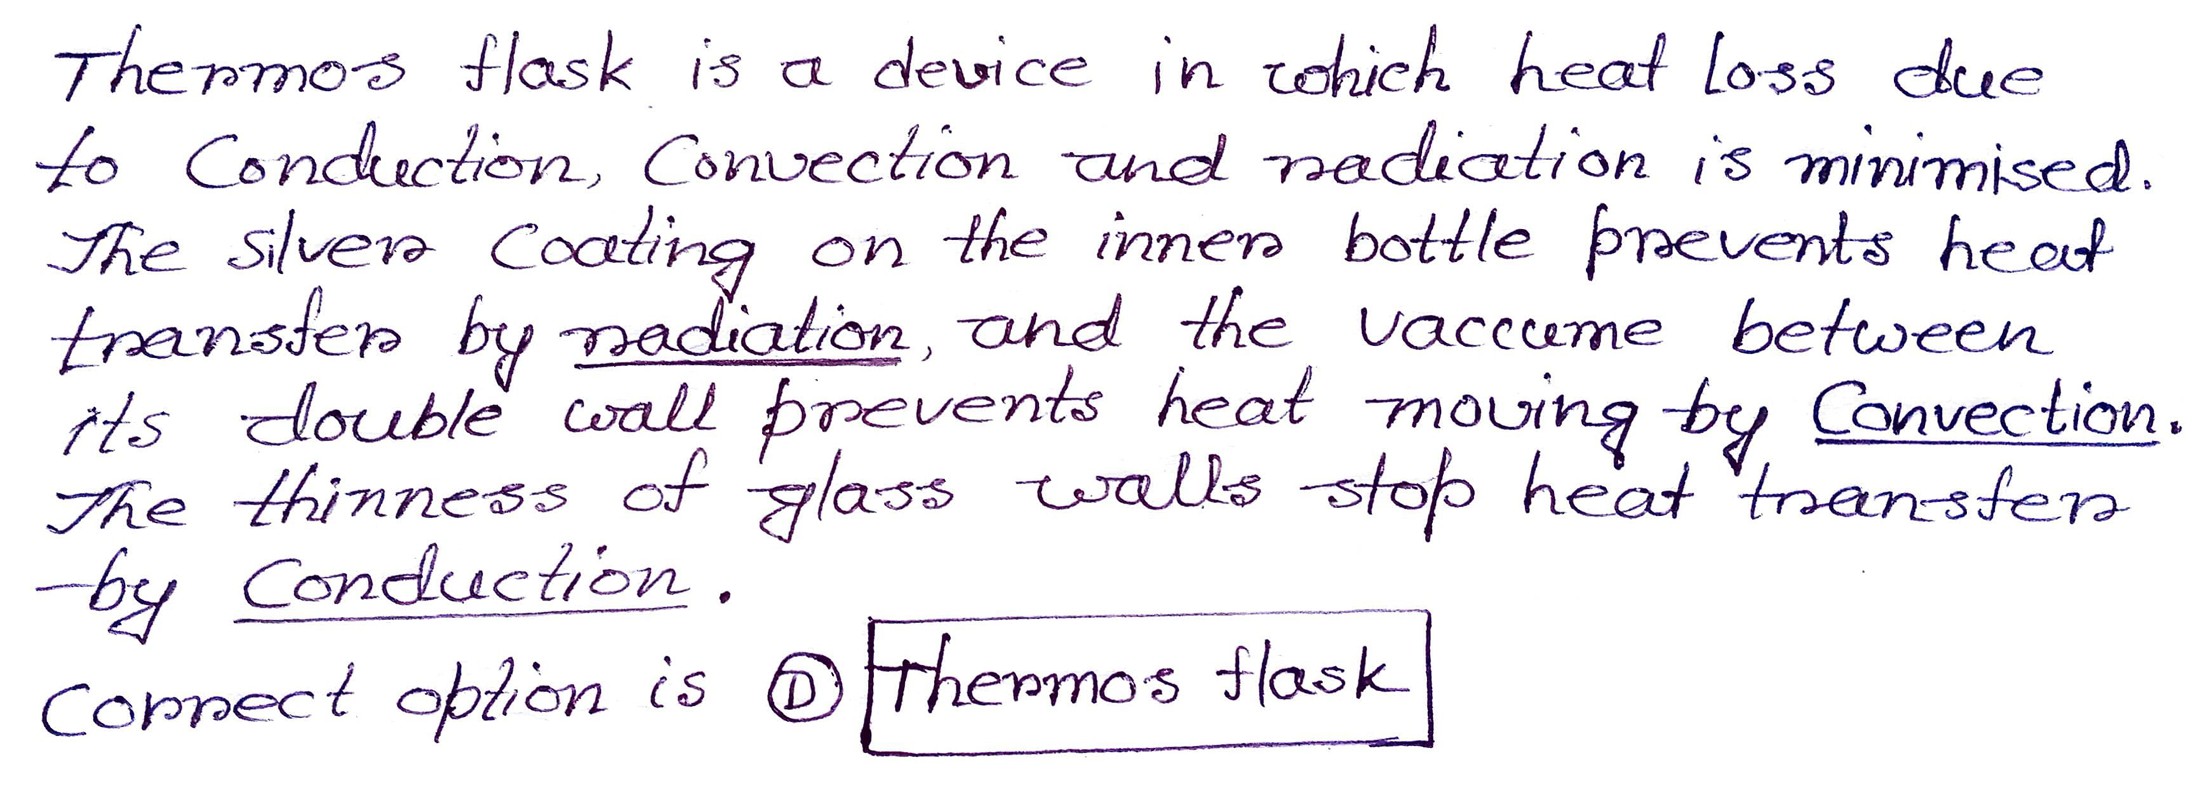 Thermos flask is a device in which heat loss due
to Conduction, Convection and radiation is minimised.
The silver Coating on the inner bottle prevents heat
transfer by radiation, and the vaccume between
its double wall prevents heat moving by Convection.
The thinness of glass walls stop heat transfer
by Conduction.
Correct option is D Thermos flask